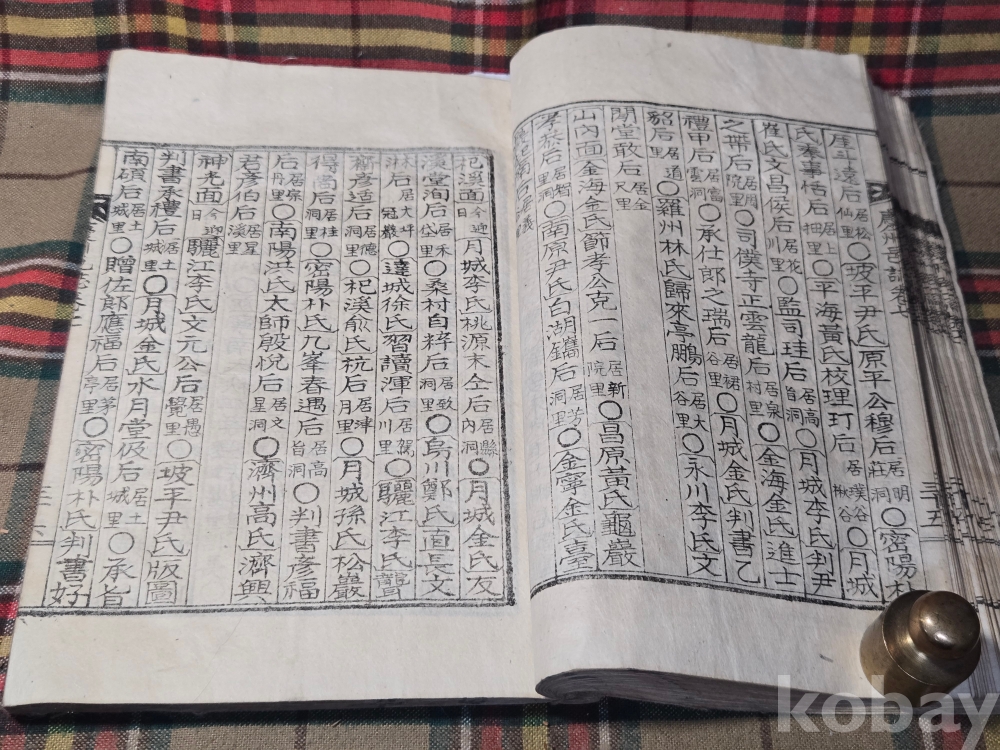 慶州邑誌卷七
崖斗遠后居松仙里〇坡平尹氏原平公穆后居明莊洞〇密陽朴
氏奉事恬后居上柵里〇平海黃氏校理玎后居璞谷楸谷〇月城
崔氏文昌侯后居花川里〇監司珪后居高旨洞〇月城李氏判尹
之帶后居周院里〇司僕寺正雲龍后居泉村里〇金海金氏進士
禮甲后居富雲洞〇承仕郞之瑞后居裙谷里〇月城金氏判書乙
貂后居道里〇羅州林氏歸來亭鵬后居大谷里〇永川李氏文
閒堂敢后居金尺里
山內面金海金氏節孝公克一后居新院里〇昌原黃氏龜巖
孝恭后居賢洞里〇南原尹氏白湖鑴后居芳里〇金寧金氏臺
三十五
杞溪面今迎日月城李氏桃源末仝后居縣內洞〇月城金氏友
溪堂洵后居禾岱里〇桑村自粹后居致洞里〇烏川鄭氏直長文
林后居大坪冠巖〇達城徐氏習讀渾后居駕川里〇驪江李氏聾
齋彦适后居德洞里〇杞溪兪氏杭后居津月里〇月城孫氏松巖
得高后居桂洞里〇密陽朴氏九峯春遇后居高旨洞〇判書彦福
后居宗丹里〇南陽洪氏太師殷悅后居文星〇濟州高氏濟興
君彦伯后居星溪里
神光面今迎日驪江李氏文元公后居愚覺里〇坡平尹氏版圖
判書承禮后居土城里〇月城金氏水月堂伋后居土城里〇承旨
南碩后居土城里〇贈佐郞應福后居茅亭里〇密陽朴氏判書好
kobay